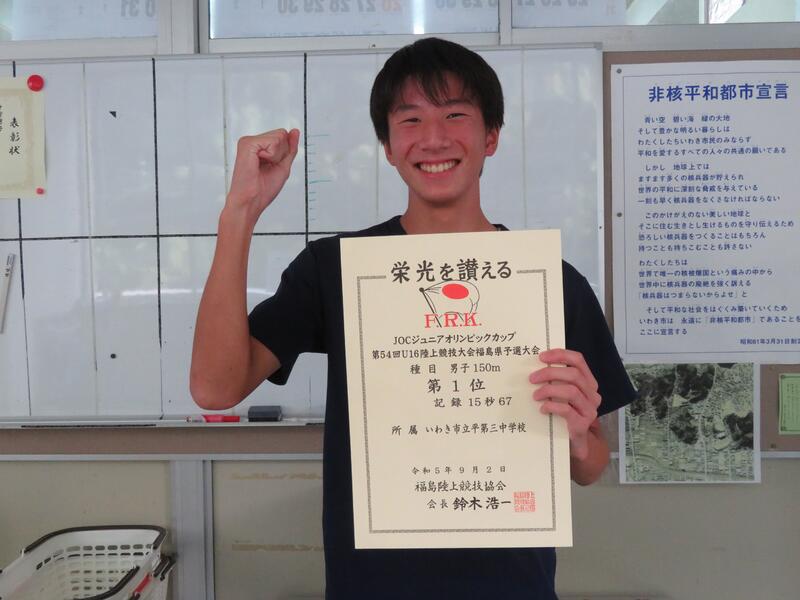 31
25 26 27 28 29 30
26 27 28 29 30
表彰状
栄光を讃える
F.R.K.
JOCジュニアオリンピックカップ
第54回U16陸上競技大会福島県予選大会
種目 男子150m
第1位
記録 15秒67
所属 いわき市立平第三中学校
令和5年9月2日
福島陸上競技協会
会長 鈴木浩一
非核平和都市宣言
青い空 碧い海 緑の大地
そして豊かな明るい暮らしは
わたくしたちいわき市民のみならず
平和を愛するすべての人々の共通の願いである
しかし 地球上では
ますます多くの核兵器が貯えられ
世界の平和に深刻な脅威を与えている
一刻も早く核兵器をなくさなければならない
このかけがえのない美しい地球と
そこに住む生きとし生けるものを守り伝えるため
恐ろしい核兵器をつくることはもちろん
持つことも持ちこむことも許さない
わたくしたちは
世界で唯一の核被爆国という痛みの中から
世界中に核兵器の廃絶を強く訴える
「核兵器はつまらないからよせ」と
そして平和な社会をはぐくみ築いていくため
いわき市は 永遠に「非核平和都市」であることを
ここに宣言する
昭和61年3月31日制定